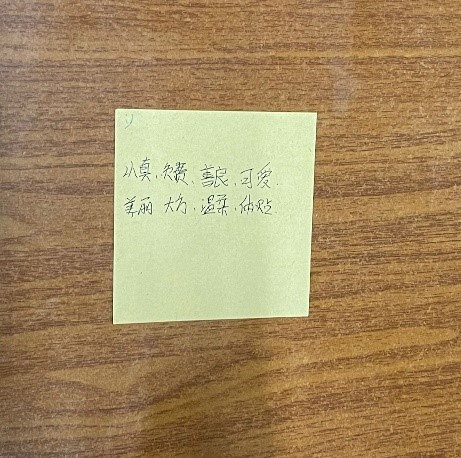 认真、负责、善良、可爱、
美丽 大方、温柔、体贴